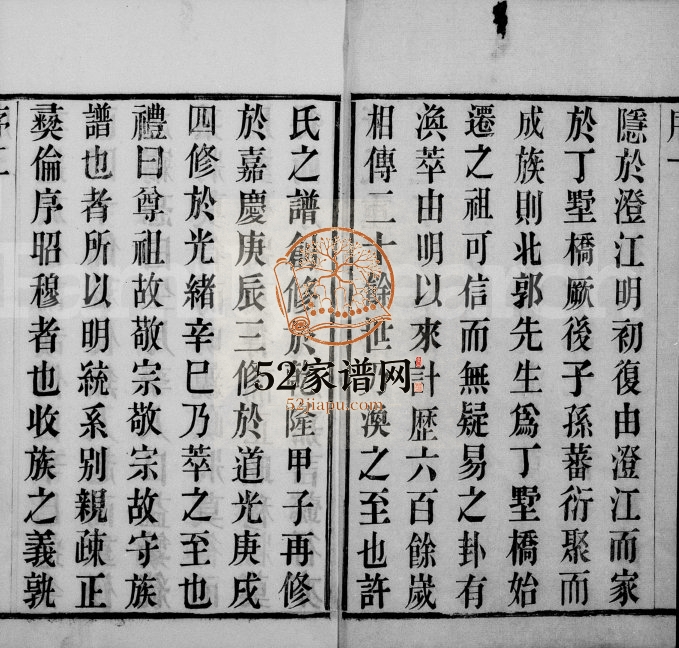 序一
隱於澄江明初復由澄江而家
於丁墅橋厥後子孫蕃衍聚而
成族則北郭先生爲丁墅橋始
遷之祖可信而無疑易之卦有
渙萃由明以來計歷六百餘歲
相傳二十餘世渙之至也許
氏之譜創修於乾隆甲子再修
於嘉慶庚辰三修於道光庚戌
四修於光緒辛巳乃萃之至也
禮曰尊祖故敬宗敬宗故守族
譜也者所以明統系别親疎正
彛倫序昭穆者也收族之義孰
序二
52家谱网
52jiapu.com